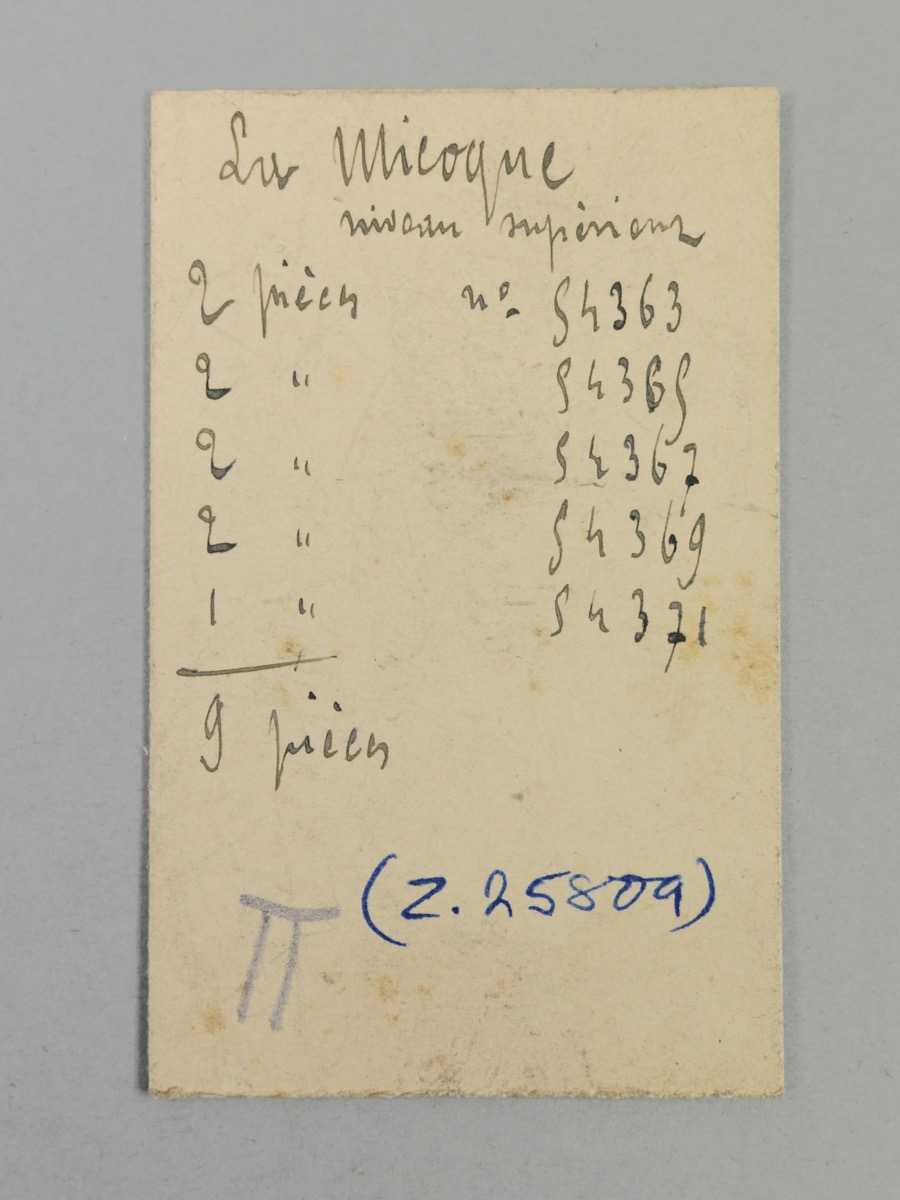 La Micoque
niveau supérieur
2 pièces no. 54363
2 " 54365
2 " 54367
2 " 54369
1 " 54371
9 pièces
(Z. 25809)
II